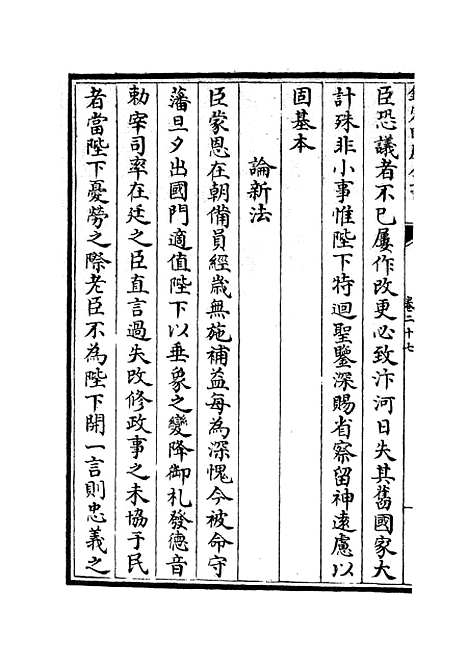 卷二十七
臣恐議者不已屢作改更必致汴河日失其舊國家大
計殊非小事惟陛下特迴聖鑒深賜省察留神遠慮以
固基本
論新法
臣蒙恩在朝備員經歲無施補益每為深愧今被命守
藩旦夕出國門適值陛下以垂象之變降御札發德音
勅宰司率在廷之臣直言過失改修政事之未協于民
者當陛下憂勞之際老臣不為陛下開一言則忠義之